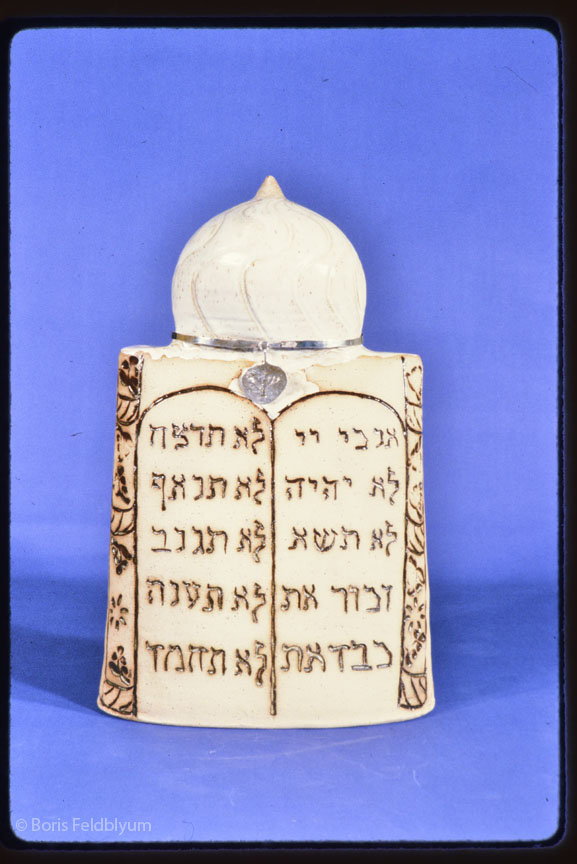 אנכי יי
לא יהיה
לא תשא
זכור את
כבד את
לא תרצח
לא תנאף
לא תגנב
לא תענה
לא תחמד
© Boris Feldblyum